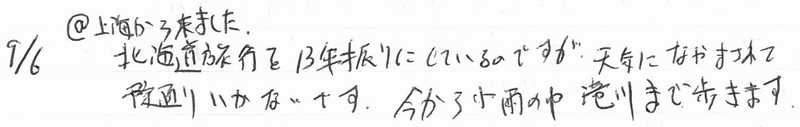 @上海から来ました.
9/6 北海道旅行を13年振りにしているのですが、天気になやまされて
予定通りいかないです. 今から小雨の中 滝川まで歩きます.